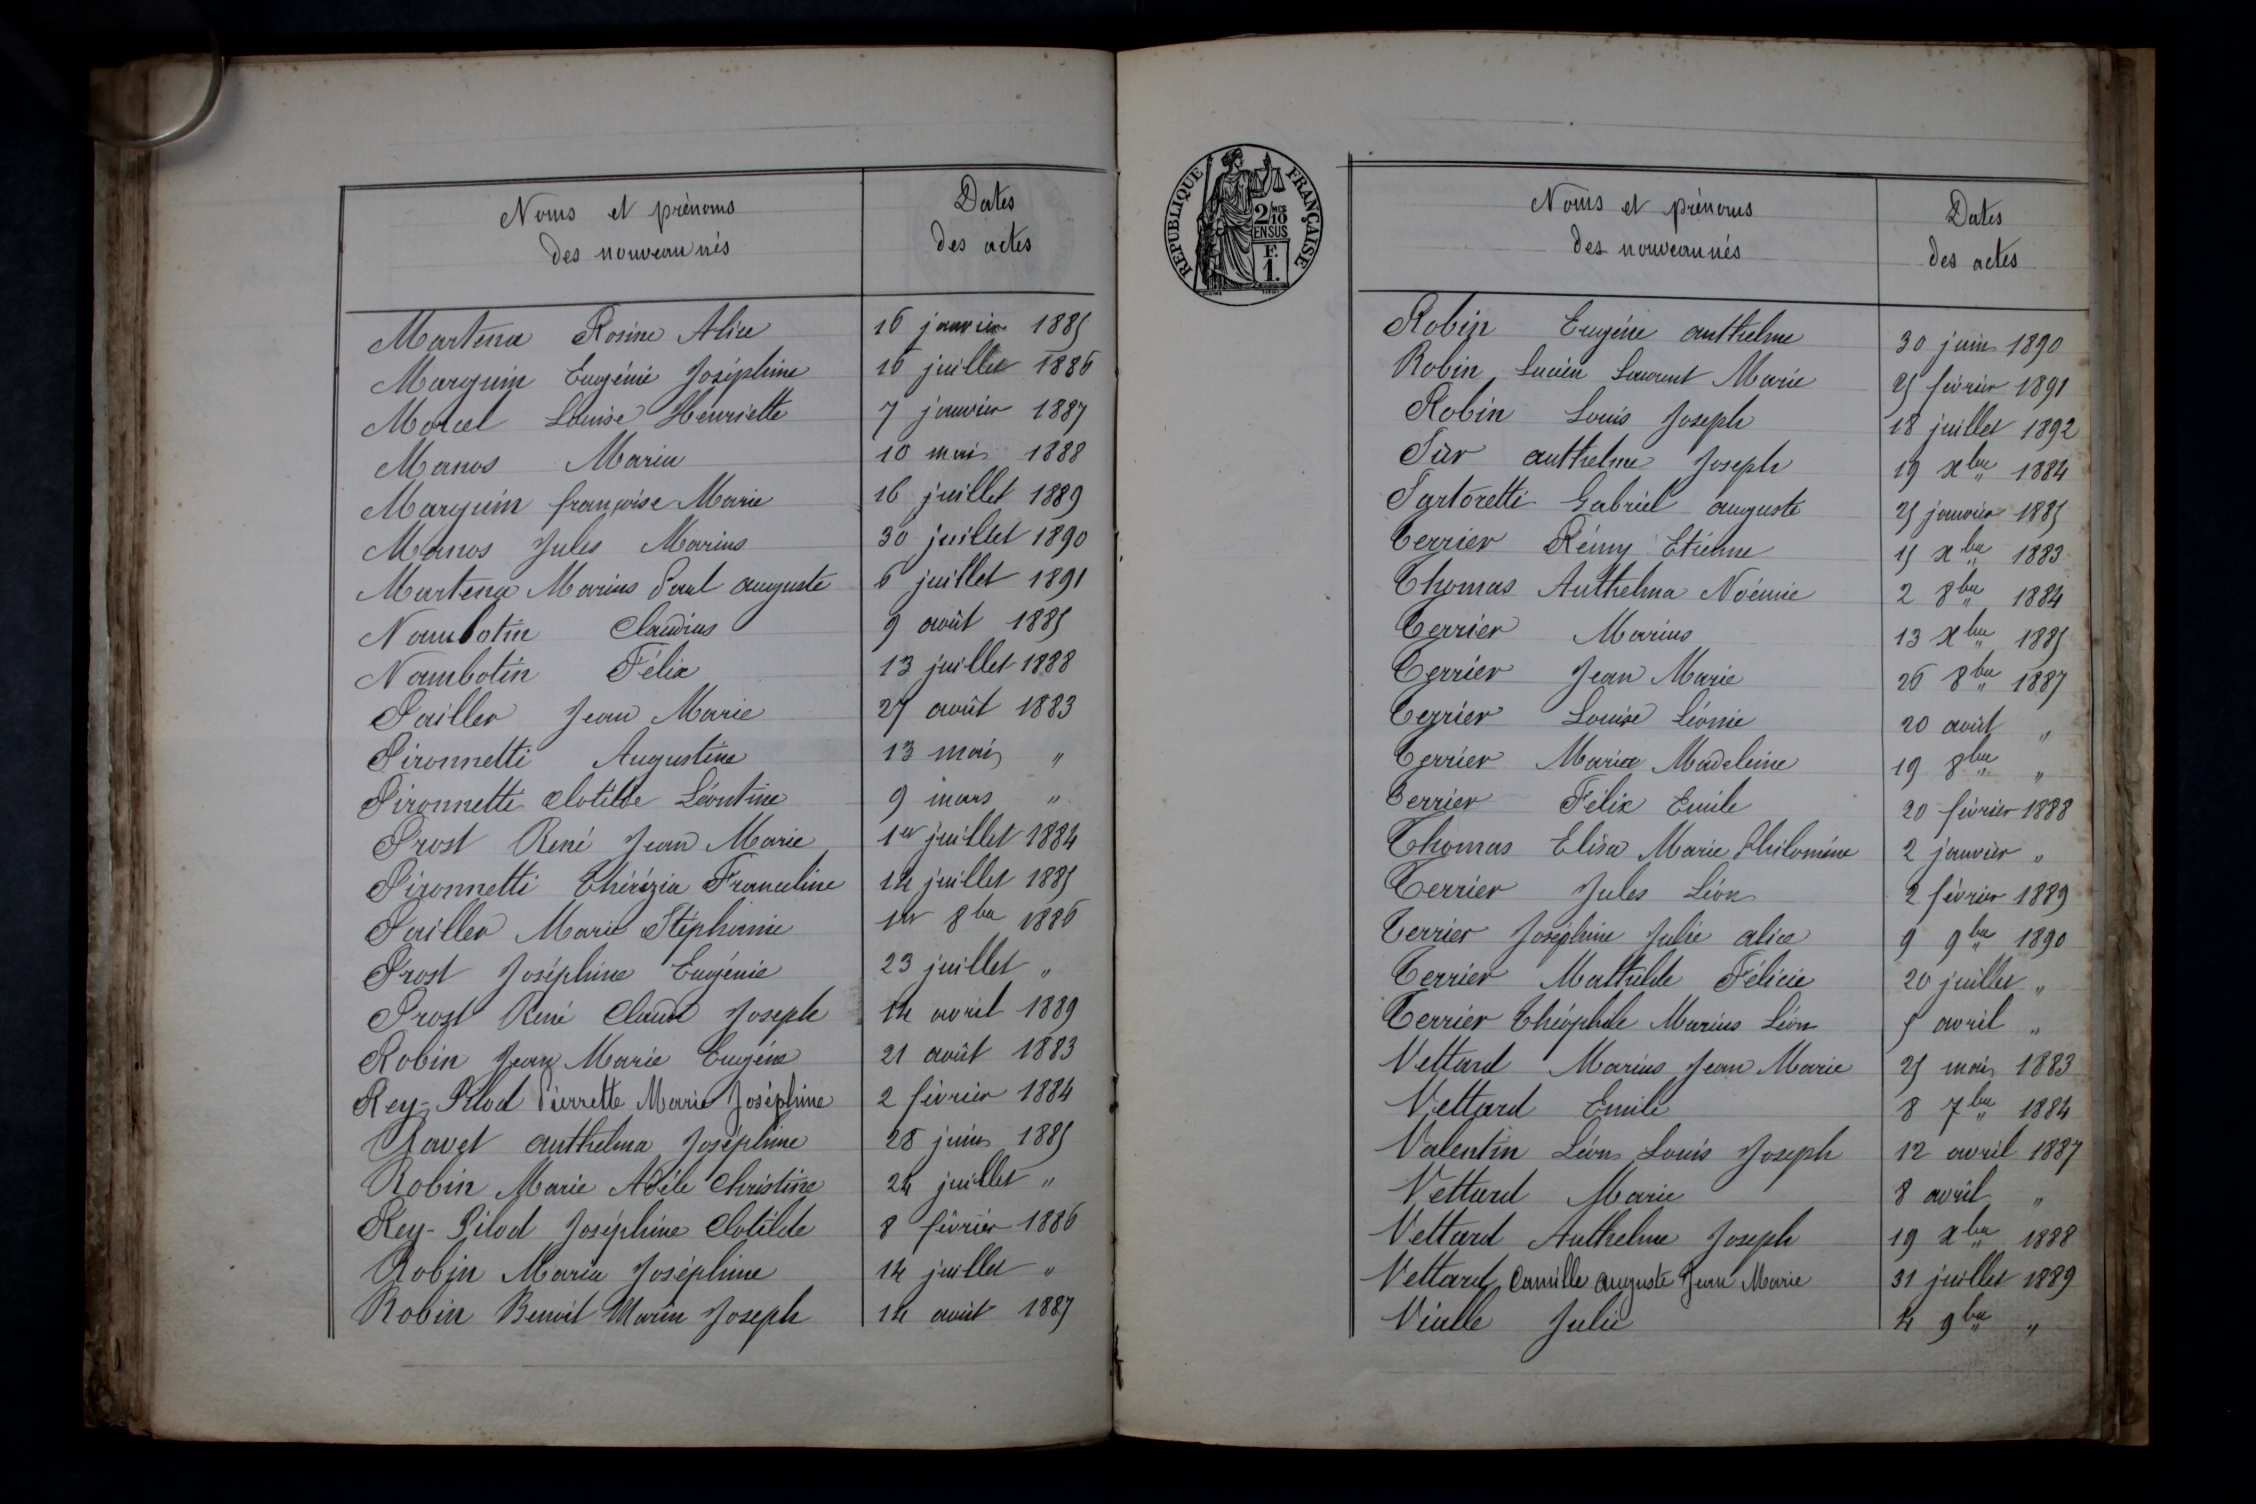 Noms et prénoms
des nouveau nés
Dates
des actes
Martena Rosine Alice 16 janvier 1885
Marguin Eugénie Joséphine 16 juillet 1886
Morcel Louise Henriette 7 janvier 1887
Manos Maria 10 mai 1888
Marguin françoise Marie 16 juillet 1889
Manos Jules Marius 30 juillet 1890
Martena Marius Paul auguste 6 juillet 1891
Nambotin Claudius 9 août 1885
Nambotin Félix 13 juillet 1888
Pailler Jean Marie 27 août 1883
Pironnetti Augustine 13 mai "
Pironnetti Clotilde Léontine 9 mars "
Prost René Jean Marie 1er juillet 1884
Pironnetti Thérézia Franceline 14 juillet 1885
Pailler Marie Stéphanie 1er 8bre 1886
Prost Joséphine Eugénie 23 juillet "
Prost René Claude Joseph 14 avril 1889
Robin Jean Marie Eugène 21 août 1883
Rey-Pilod Pierrette Marie Joséphine 2 février 1884
Ravet anthelma Joséphine 28 juin 1885
Robin Marie Adèle Christine 24 juillet "
Rey-Pilod Joséphine Clotilde 8 février 1886
Robin Maria Joséphine 14 juillet "
Robin Benoit Marin Joseph 14 août 1887
REPUBLIQUE FRANÇAISE
2/10 MES
EN SUS
F.
1.
Noms et prénoms
des nouveau nés
Dates
des actes
Robin Eugène anthelme 30 juin 1890
Robin Lucien Laurent Marie 25 février 1891
Robin Louis Joseph 18 juillet 1892
Sùr anthelme Joseph 19 xbre 1884
Sartoretti Gabriel auguste 25 janvier 1885
Terrier Rémy Etienne 15 xbre 1883
Thomas Anthelma Noémie 2 8bre 1884
Terrier Marius 13 xbre 1885
Terrier Jean Marie 26 8bre 1887
Terrier Louise Léonie 20 août "
Terrier Maria Madeleine 19 8bre "
Terrier Félix Emile 20 février 1888
Thomas Elisa Marie Philomène 2 janvier "
Terrier Jules Léon 2 février 1889
Terrier Joséphine Julie alice 9 9bre 1890
Terrier Mathilde Félicie 20 juillet "
Terrier Théophile Marius Léon 5 avril "
Vettard Marius Jean Marie 25 mai 1883
Vettard Emile 8 7bre 1884
Valentin Léon Louis Joseph 12 avril 1887
Vettard Marie 8 avril "
Vettard Anthelme Joseph 19 xbre 1888
Vettard Camille auguste Jean Marie 31 juillet 1889
Vialle Julie 4 9bre "